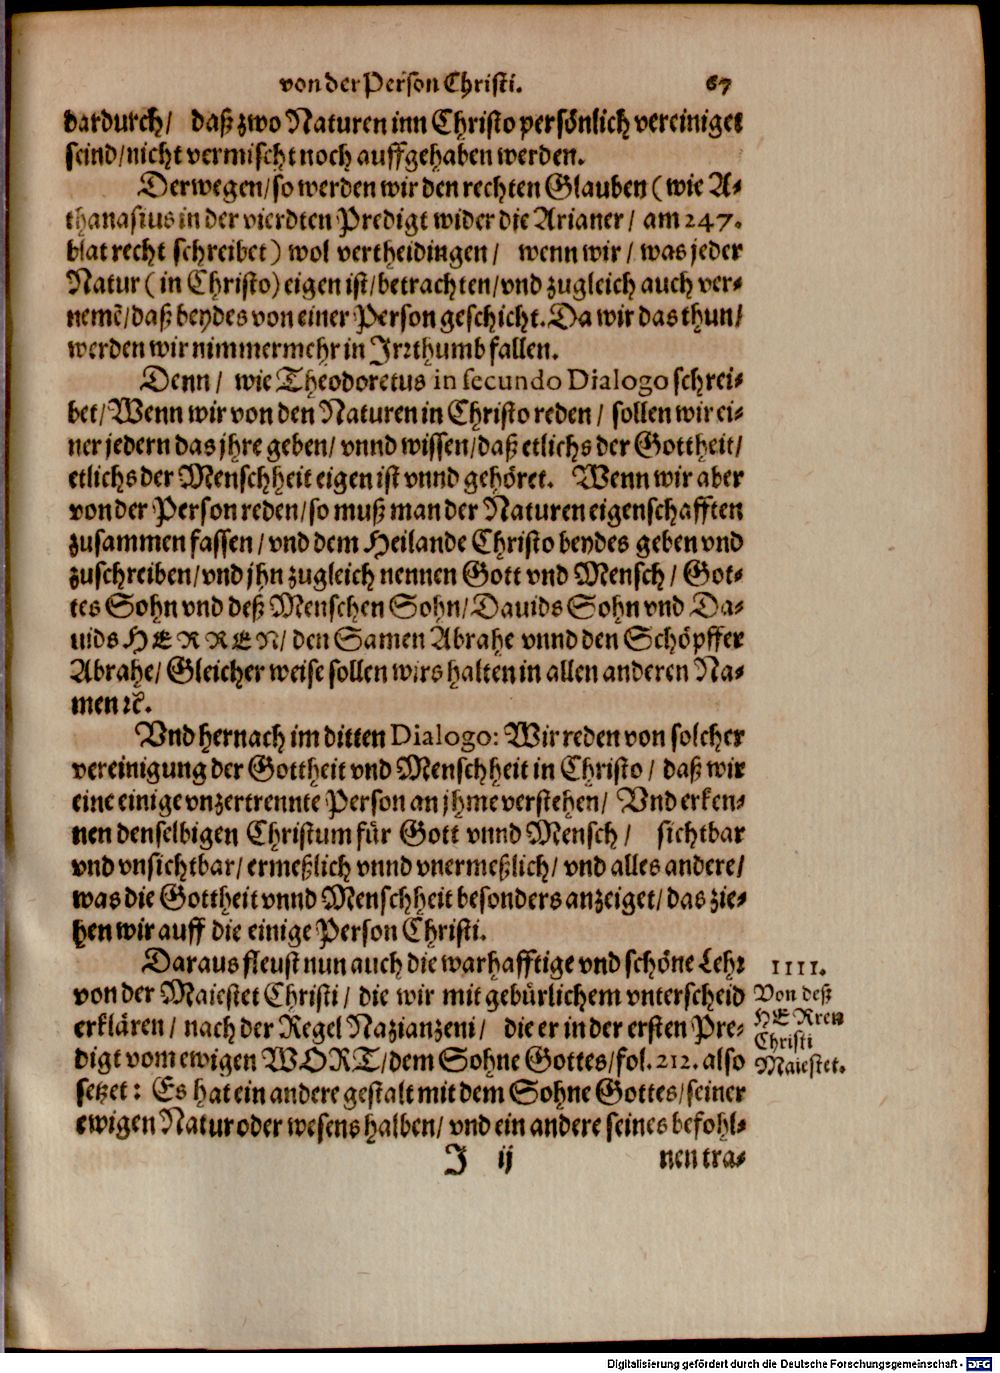 von der Person Christi. 67
dardurch/ daß zwo Naturen inn Christo persönlich vereiniget
seind/nicht vermischt noch auffgehaben werden.
Derwegen/so werden wir den rechten Glauben (wie A⸗
thanasius in der vierdten Predigt wider die Arianer/ am 247.
blat recht schreibet) wol vertheidingen/ wenn wir/ was jeder
Natur (in Christo) eigen ist/betrachten/vnd zugleich auch ver⸗
nemē/daß beydes von einer Person geschicht. Da wir das thun/
werden wir nimmermehr in Irrthumb fallen.
Denn/ wie Theodoretus in secundo Dialogo schrei⸗
bet/Wenn wir von den Naturen in Christo reden/ sollen wir ei⸗
ner jedern das jhre geben/ vnnd wissen/daß etlichs der Gottheit/
etlichs der Menschheit eigen ist vnnd gehöret. Wenn wir aber
von der Person reden/so muß man der Naturen eigenschafften
zusammen fassen/vnd dem Heilande Christo beydes geben vnd
zuschreiben/vnd jhn zugleich nennen Gott vnd Mensch/ Got⸗
tes Sohn vnd deß Menschen Sohn/Dauids Sohn vnd Da⸗
uids HERREN/ den Samen Abrahe vnnd den Schöpffer
Abrahe/ Gleicher weise sollen wirs halten in allen anderen Na⸗
men ꝛc.
Vnd hernach im ditten Dialogo: Wir reden von solcher
vereinigung der Gottheit vnd Menschheit in Christo/ daß wir
eine einige vnzertrennte Person an jhme verstehen/ Vnd erken⸗
nen denselbigen Christum für Gott vnnd Mensch/ sichtbar
vnd vnsichtbar/ ermeßlich vnnd vnermeßlich/ vnd alles andere/
was die Gottheit vnnd Menschheit besonders anzeiget/ das zie⸗
hen wir auff die einige Person Christi.
Daraus fleust nun auch die warhafftige vnd schöne Lehr
von der Maiestet Christi/ die wir mit gebürlichem vnterscheid
erklären/ nach der Regel Nazianzeni/ die er in der ersten Pre⸗
digt vom ewigen WORT/dem Sohne Gottes/fol. 212. also
setzet: Es hat ein andere gestalt mit dem Sohne Gottes/seiner
ewigen Natur oder wesens halben/ vnd ein andere seines befohl⸗
J ij nen tra⸗
IIII.
Von deß
HERren
Christi
Maiestet.
Digitalisierung gefördert durch die Deutsche Forschungsgemeinschaft - DFG